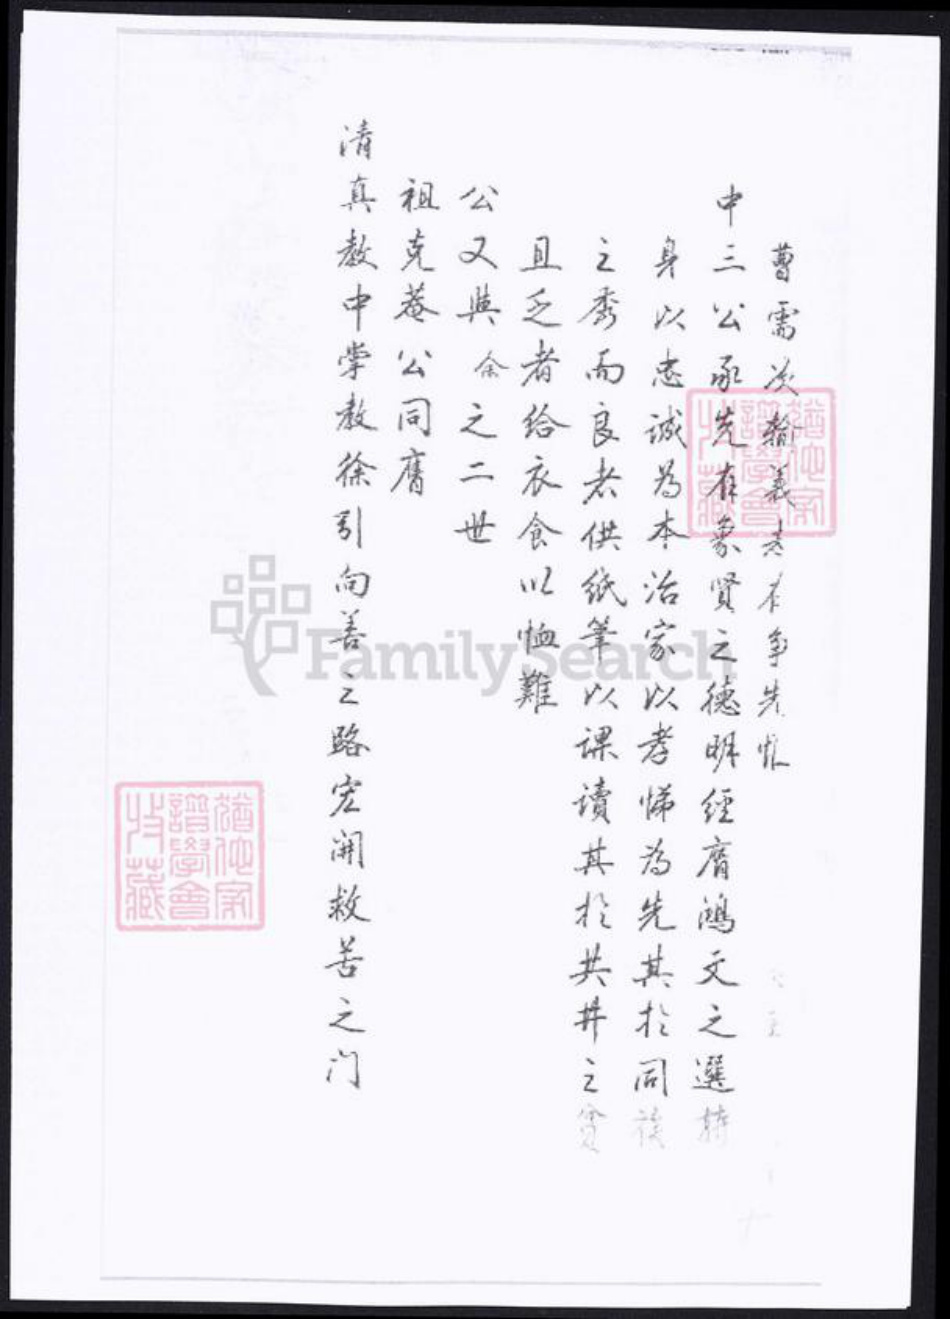 曹需次輸義者有爭先恨
中三公承先有象賢之德明經膺鴻文之選持
身以忠誠為本治家以孝悌為先其於同族
之秀而良者供紙筆以課讀其於共井之貧
且乏者給衣食以恤難
公又與余之二世
祖克菴公同膺
清真教中掌教徐引向善之路宏開救苦之门
猶他家
譜學會
收藏
猶他家
譜學會
收藏
FamilySearch